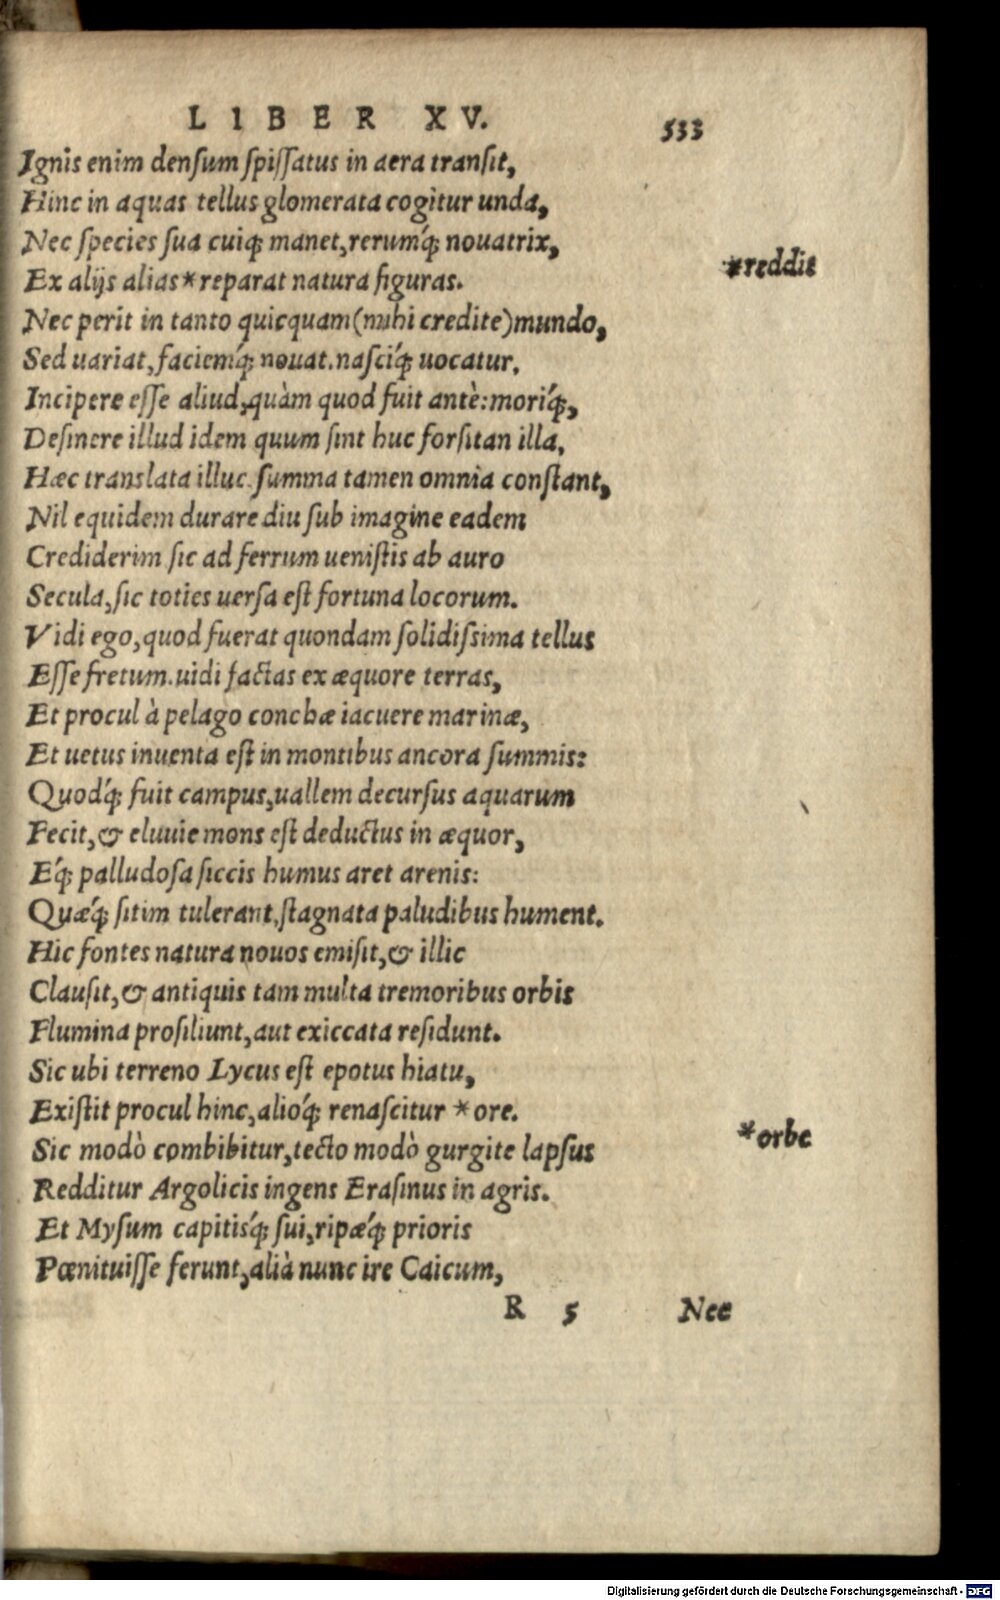 LIBER XV. 533
Ignis enim denſum ſpiſſatus in aera tranſit,
Hinc in aquas tellus glomerata cogitur unda,
Nec ſpecies ſua cuiq; manet, rerumq́; nouatrix,
Ex alijs alias*reparat natura figuras.
*reddit
Nec perit in tanto quicquam(mihi credite)mundo,
Sed uariat, faciemq́; nouat. naſciq́; uocatur,
Incipere eſſe aliud, quàm quod fuit antè: moriq́;,
Deſinere illud idem quum ſint huc forſitan illa,
Hæc translata illuc. ſumma tamen omnia conſtant,
Nil equidem durare diu ſub imagine eadem
Crediderim ſic ad ferrum ueniſtis ab auro
Secula, ſic toties uerſa eſt fortuna locorum.
Vidi ego, quod fuerat quondam ſolidiſsima tellus
Eſſe fretum. uidi factas ex æquore terras,
Et procul à pelago conchæ iacuere marinæ,
Et uetus inuenta eſt in montibus ancora ſummis:
Quodq́; fuit campus, uallem decurſus aquarum
Fecit, & eluuie mons eſt deductus in æquor,
Eq́; palludoſa ſiccis humus aret arenis:
Quæq́; ſitim tulerant, ſtagnata paludibus hument.
Hic fontes natura nouos emiſit, & illic
Clauſit, & antiquis tam multa tremoribus orbis
Flumina proſiliunt, aut exiccata reſidunt.
Sic ubi terreno Lycus eſt epotus hiatu,
Exiſtit procul hinc, alioq́; renaſcitur *ore.
*orbe
Sic modò combibitur, tecto modò gurgite lapſus
Redditur Argolicis ingens Eraſinus in agris.
Et Myſum capitisq́; ſui, ripæq́; prioris
Pœnituiſſe ferunt, alià nunc ire Caicum,
R 5 Nec
Digitalisierung gefördert durch die Deutsche Forschungsgemeinschaft - DFG